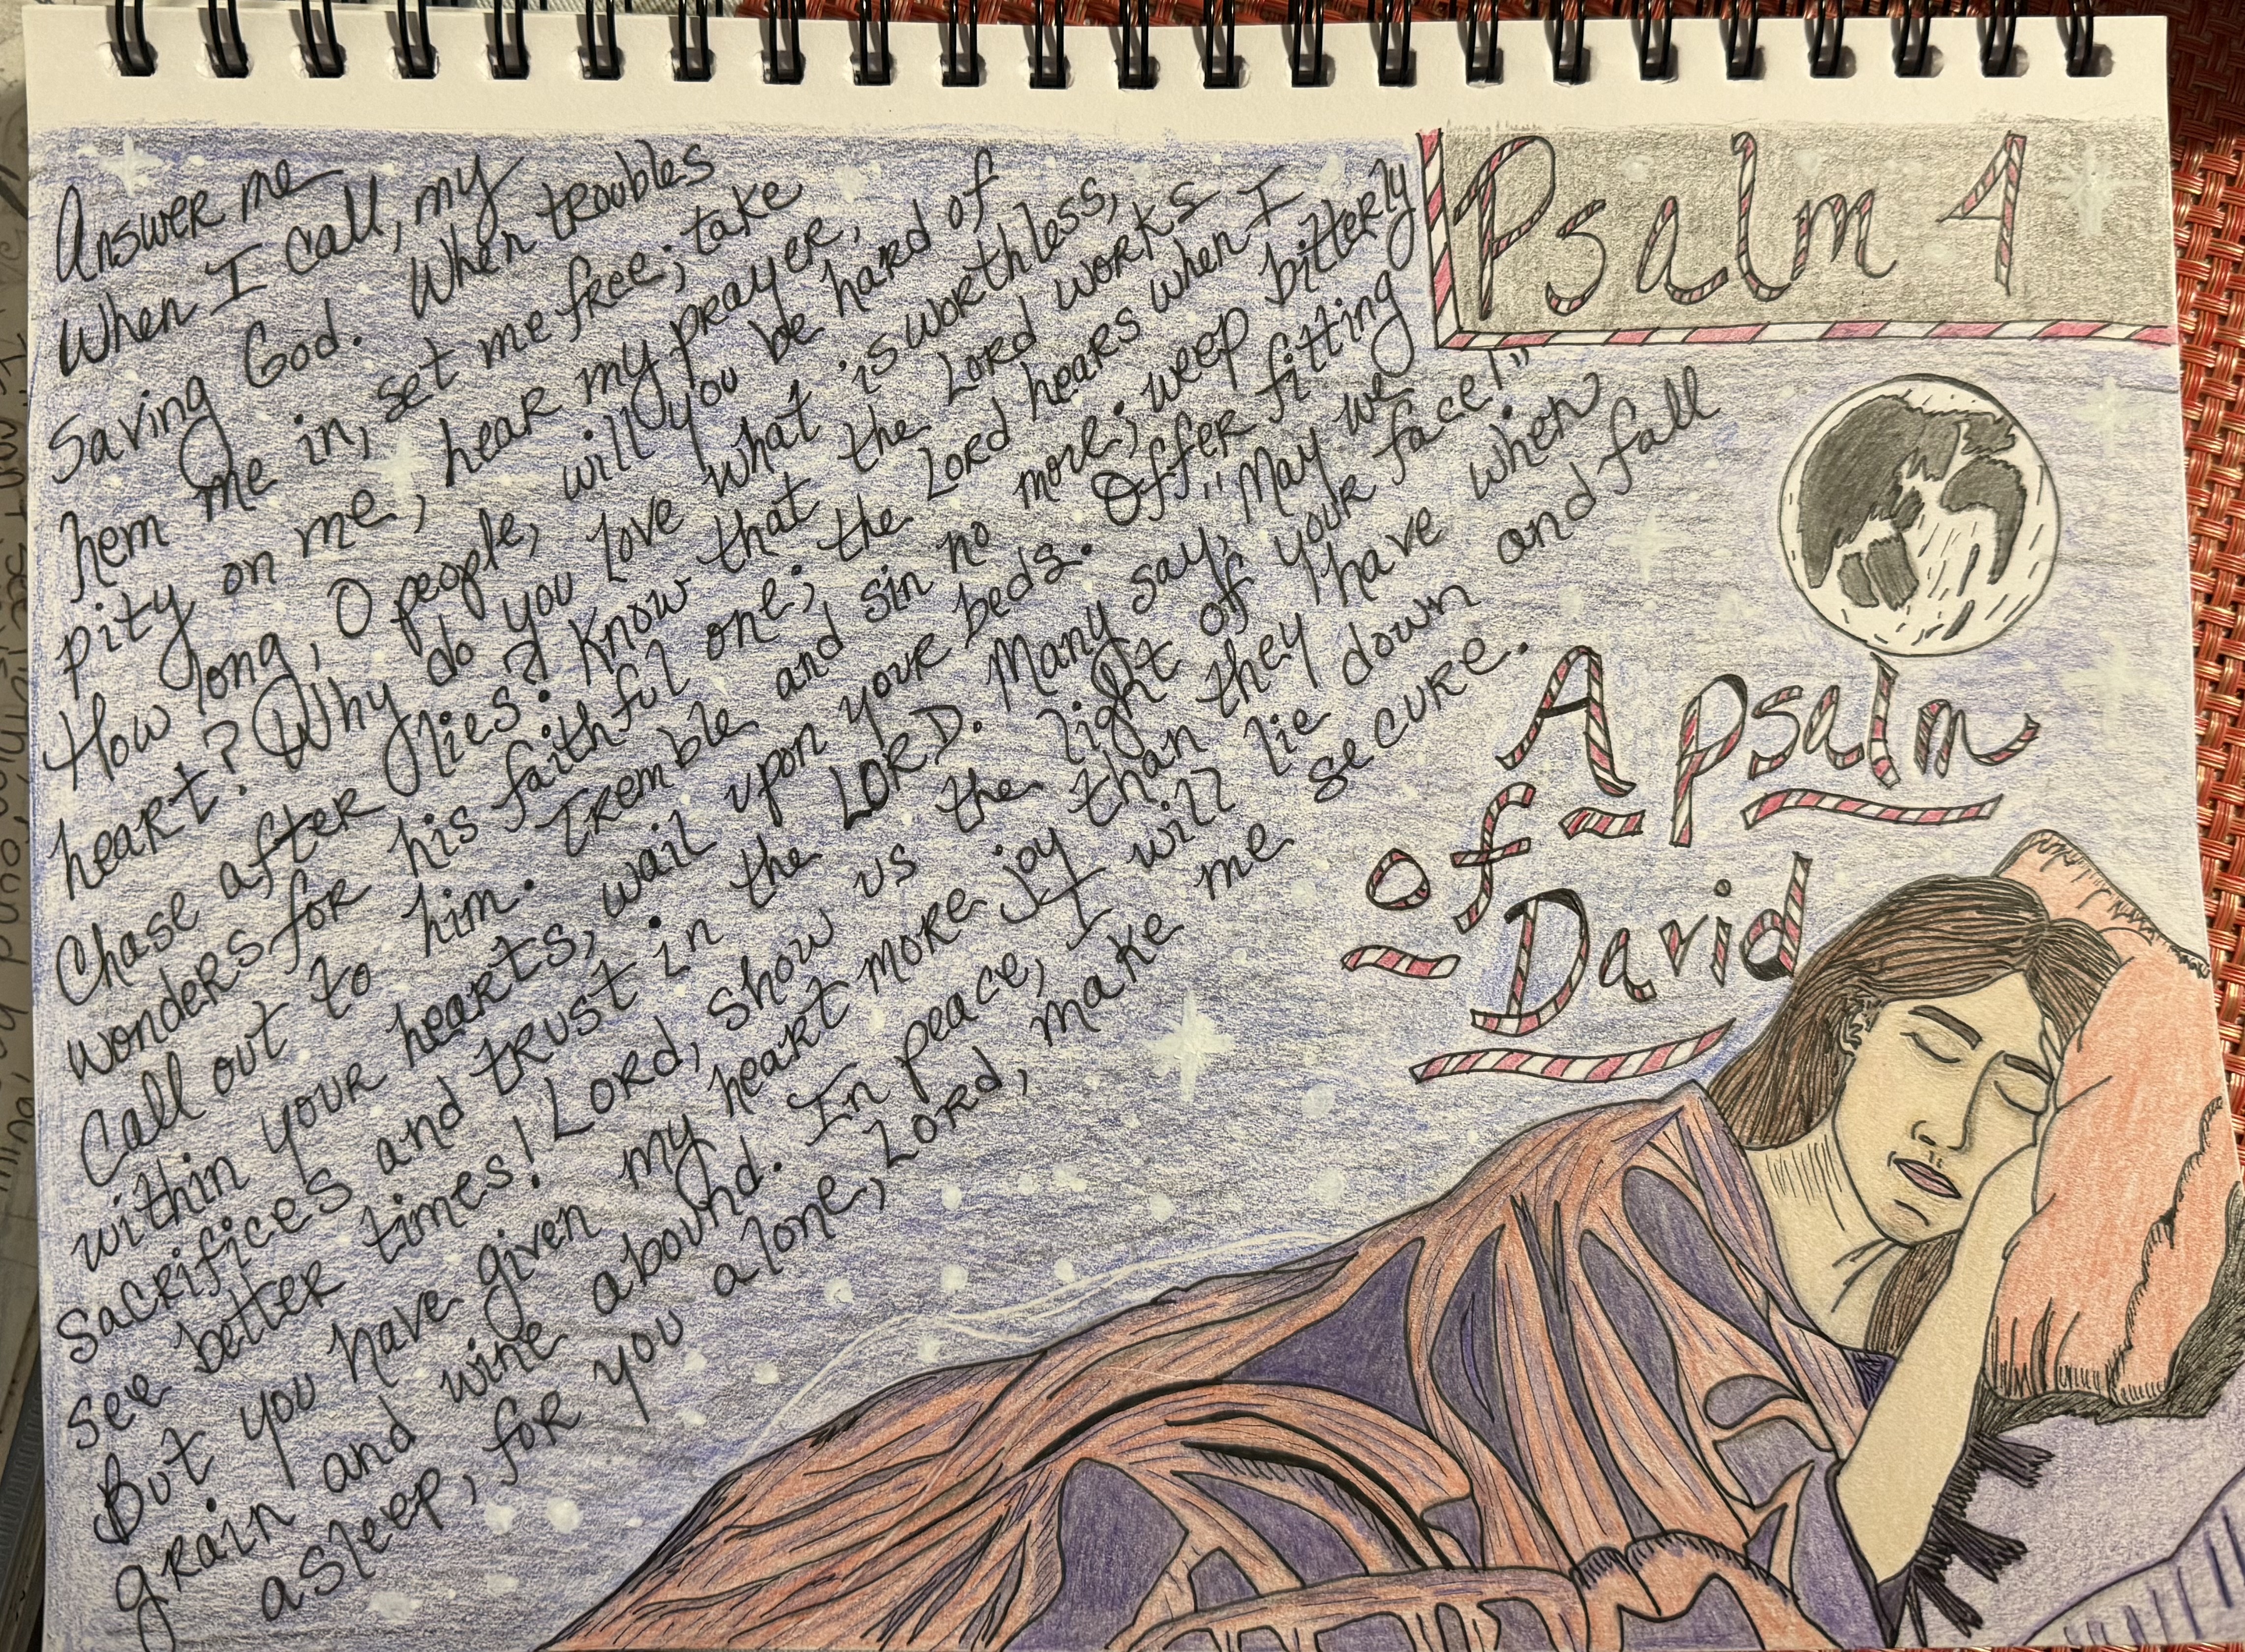 Answer me
When I call, my
Saving God. When troubles
hem me in, set me free; take
pity on me, hear my prayer,
How long, O people, will you be hard of
heart? Why do you love what is worthless,
Chase after lies? Know that the Lord works
wonders for his faithful one; the Lord hears when I
Call out to him. Tremble and sin no more; weep bitterly
within your hearts, wail upon your beds. Offer fitting
Sacrifices and trust in the LORD. Many say, "May we
see better times! Lord, show us the light of your face!"
But you have given my heart more joy than they have when
grain and wine abound. In peace, I will lie down and fall
asleep, for you alone, Lord, make me secure.
Psalm 4
A Psalm
of
David